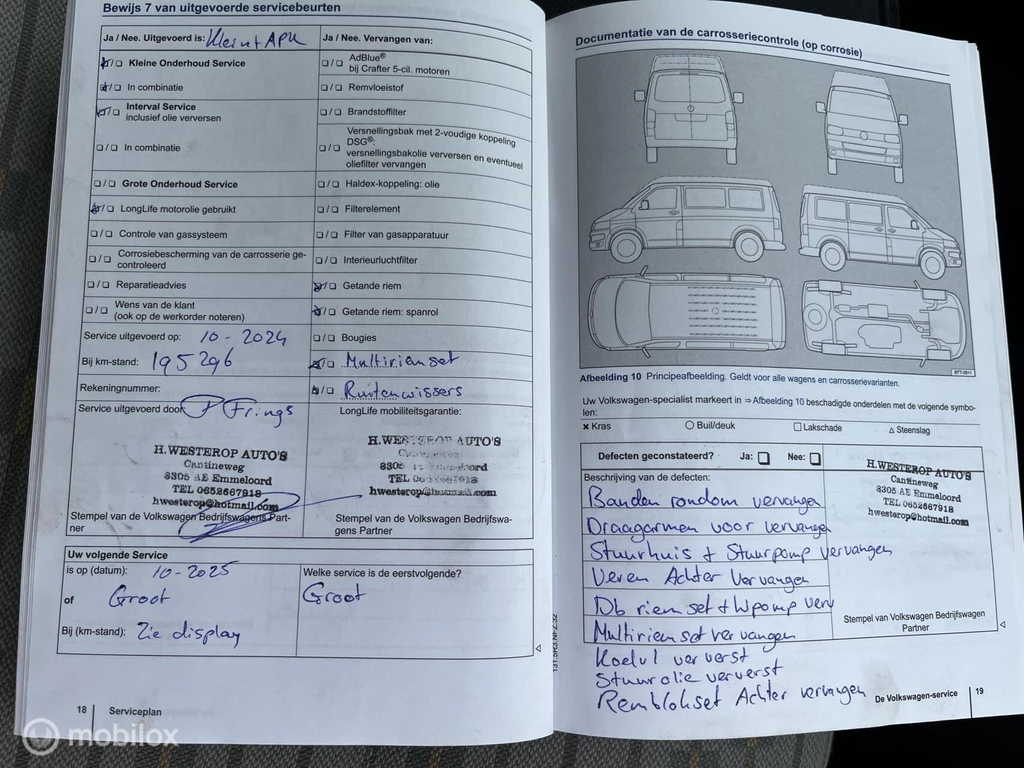 Bewijs 7 van uitgevoerde servicebeurten
Ja / Nee. Uitgevoerd is: Klein + APK
Ja / Nee. Vervangen van:
❏ / ❏ Kleine Onderhoud Service
❏ / ❏ In combinatie
❏ / ❏ Interval Service
inclusief olie verversen
❏ / ❏ In combinatie
❏ / ❏ Grote Onderhoud Service
❏ / ❏ LongLife motorolie gebruikt
❏ / ❏ Controle van gassysteem
❏ / ❏ Corrosiebescherming van de carrosserie ge-
controleerd
❏ / ❏ Reparatieadvies
❏ / ❏ Wens van de klant
(ook op de werkorder noteren)
❏ / ❏ AdBlue®
bij Crafter 5-cil. motoren
❏ / ❏ Remvloeistof
❏ / ❏ Brandstoffilter
Versnellingsbak met 2-voudige koppeling
❏ / ❏ DSG®:
versnellingsbakolie verversen en eventueel
oliefilter vervangen
❏ / ❏ Haldex-koppeling: olie
❏ / ❏ Filterelement
❏ / ❏ Filter van gasapparatuur
❏ / ❏ Interieurluchtfilter
❏ / ❏ Getande riem
❏ / ❏ Getande riem: spanrol
❏ / ❏ Bougies
❏ / ❏ Multiriemset
❏ / ❏ Ruitenwissers
Service uitgevoerd op: 10 - 2024
Bij km-stand: 195 296
Rekeningnummer:
Service uitgevoerd door: P Frings
H.WESTEROP AUTO'S
Cantineweg
8305 AE Emmeloord
TEL 0652667918
hwesterop@hotmail.com
Stempel van de Volkswagen Bedrijfswagens Part-
ner
LongLife mobiliteitsgarantie:
H.WESTEROP AUTO'S
hwesterop@hotmail.com
Stempel van de Volkswagen Bedrijfswa-
gens Partner
Uw volgende Service
is op (datum): 10-2025
of Groot
Bij (km-stand): Zie display
Welke service is de eerstvolgende?
Groot
18 Serviceplan
Documentatie van de carrosseriecontrole (op corrosie)
BTT-0511
Afbeelding 10 Principeafbeelding. Geldt voor alle wagens en carrosserievarianten.
Uw Volkswagen-specialist markeert in ⇒ Afbeelding 10 beschadigde onderdelen met de volgende symbo-
len:
× Kras ○ Buil/deuk □ Lakschade △ Steenslag
Defecten geconstateerd? Ja: ❏ Nee: ❏
Beschrijving van de defecten:
Banden rondom vervangen
Draagarmen voor vervangen
Stuurhuis + Stuurpomp vervangen
Veren Achter vervangen
Db riem set + Wpomp verv
Multiriem set vervangen
Koelvl ververst
Stuurolie ververst
Remblokset Achter vervangen
H.WESTEROP AUTO'S
Cantineweg
8305 AE Emmeloord
TEL 0652667918
hwesterop@hotmail.com
Stempel van Volkswagen Bedrijfswagen
Partner
131.5R3.NFZ.32
De Volkswagen-service 19
mobilox